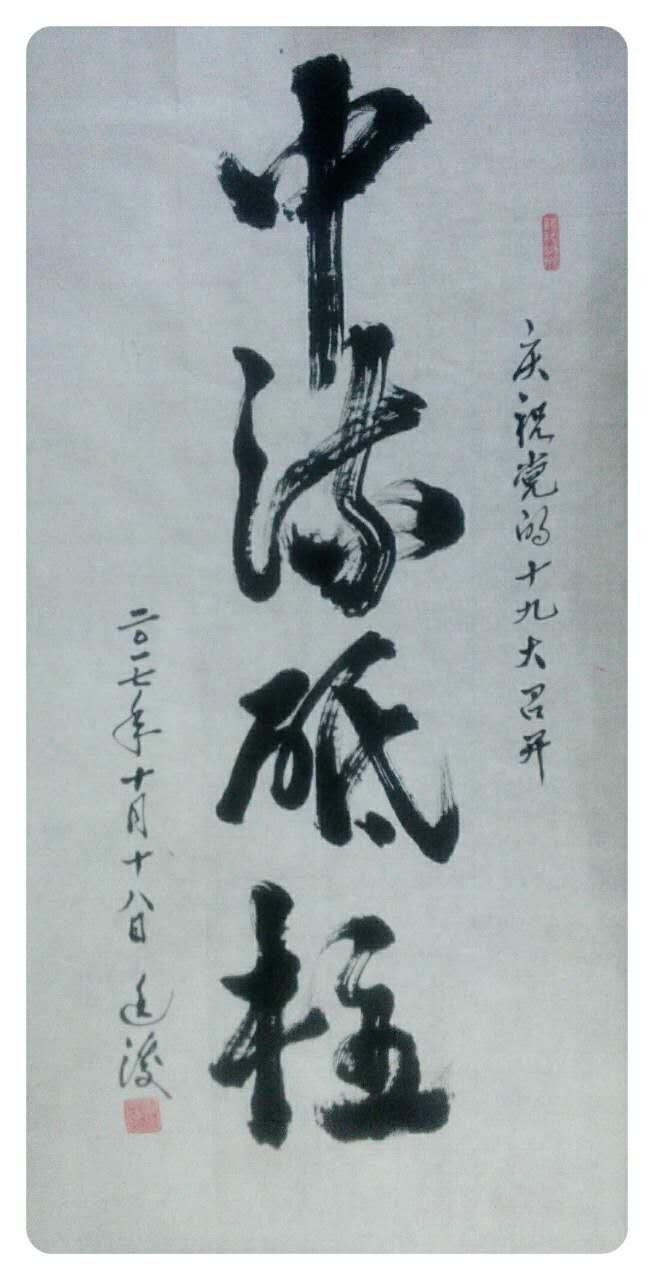 庆祝党的十九大召开
中流砥柱
二〇一七年十月十八日